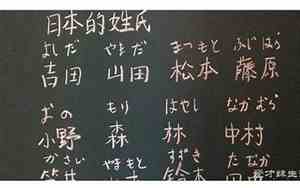 日本的姓氏
よしだ やまだ まつもと ふじはら
吉田 山田 松本 藤原
おの もり はやし なかむら
小野 森 林 中村
かさい やまもと すずき たなか